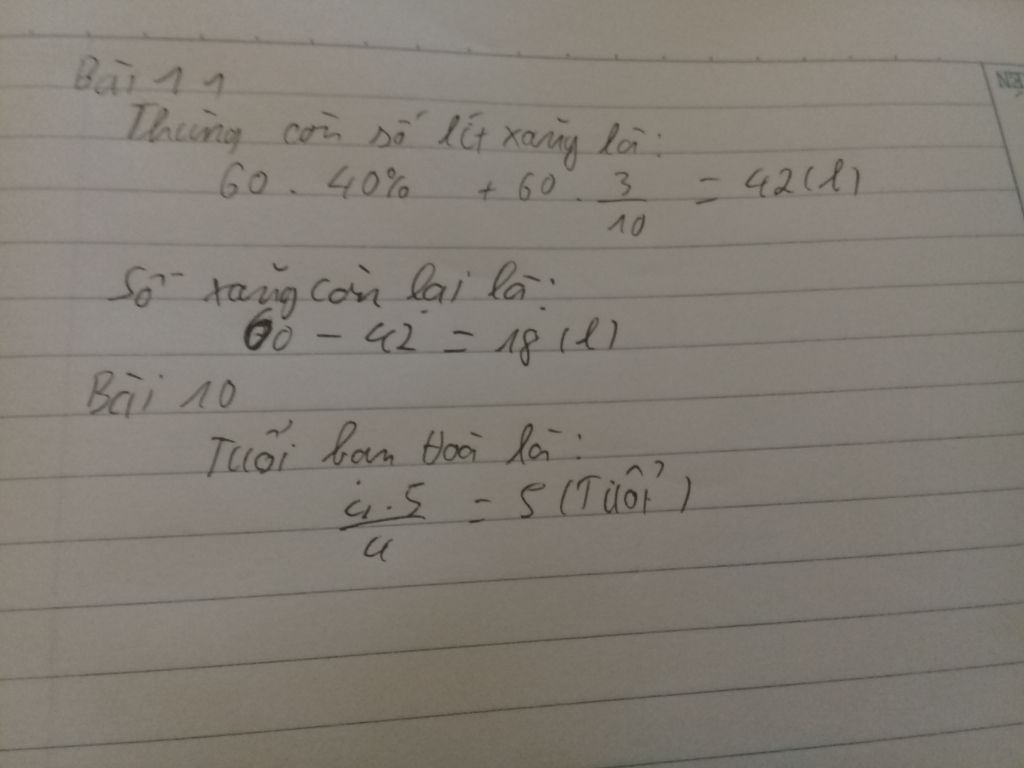 Bài 11
Thùng còn số lít xăng là:
60 . 40% + 60 . 3/10 = 42 (l)
Số xăng còn lại là:
60 - 42 = 18 (l)
Bài 10
Tuổi bạn Hoà là:
4.5/4 = 5 (Tuổi)